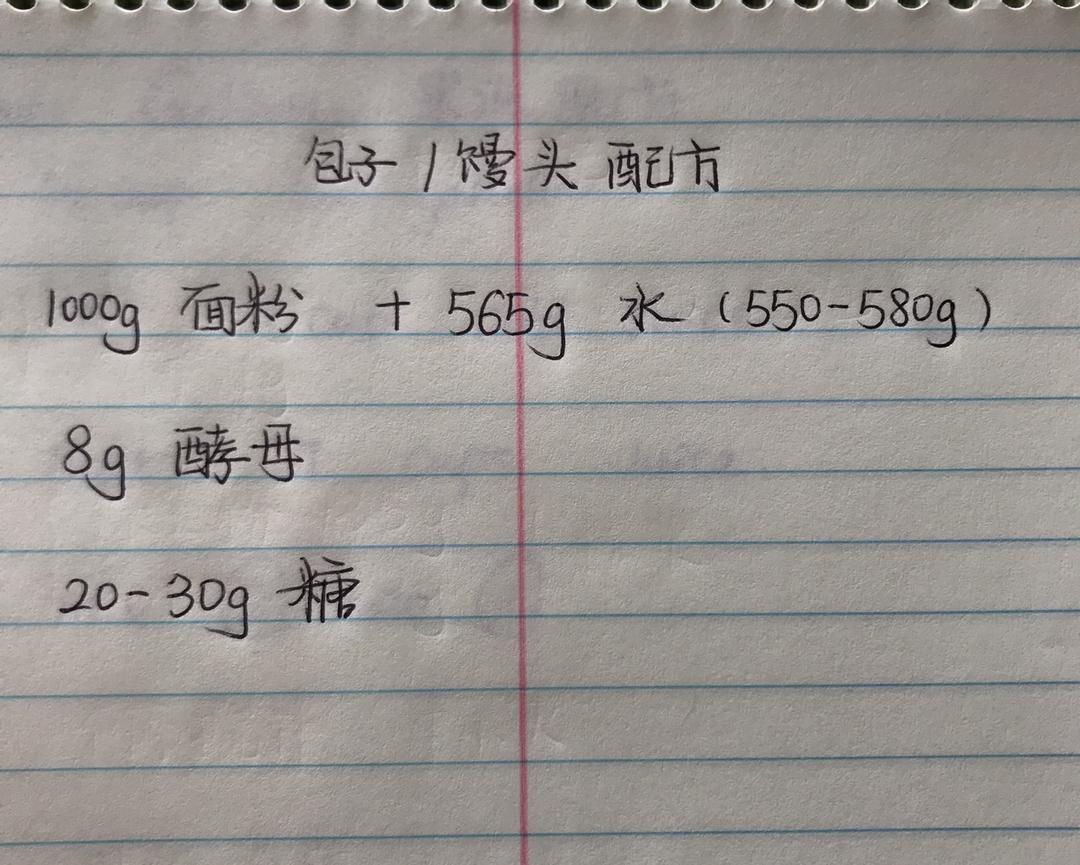 包子/馒头 配方
1000g 面粉 + 565g 水 (550-580g)
8g 酵母
20-30g 糖